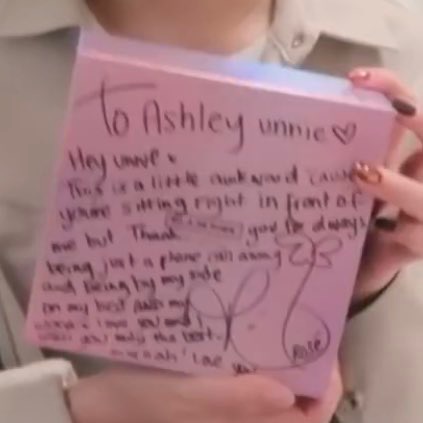 To Ashley unnie ♡
Hey unnie
This is a little awkward 'cause
you're sitting right in front of
me but Thank you for always
being just a phone call away
and being by my side
on my best
love you and
you only the best.
mwah! Love you
Rosé